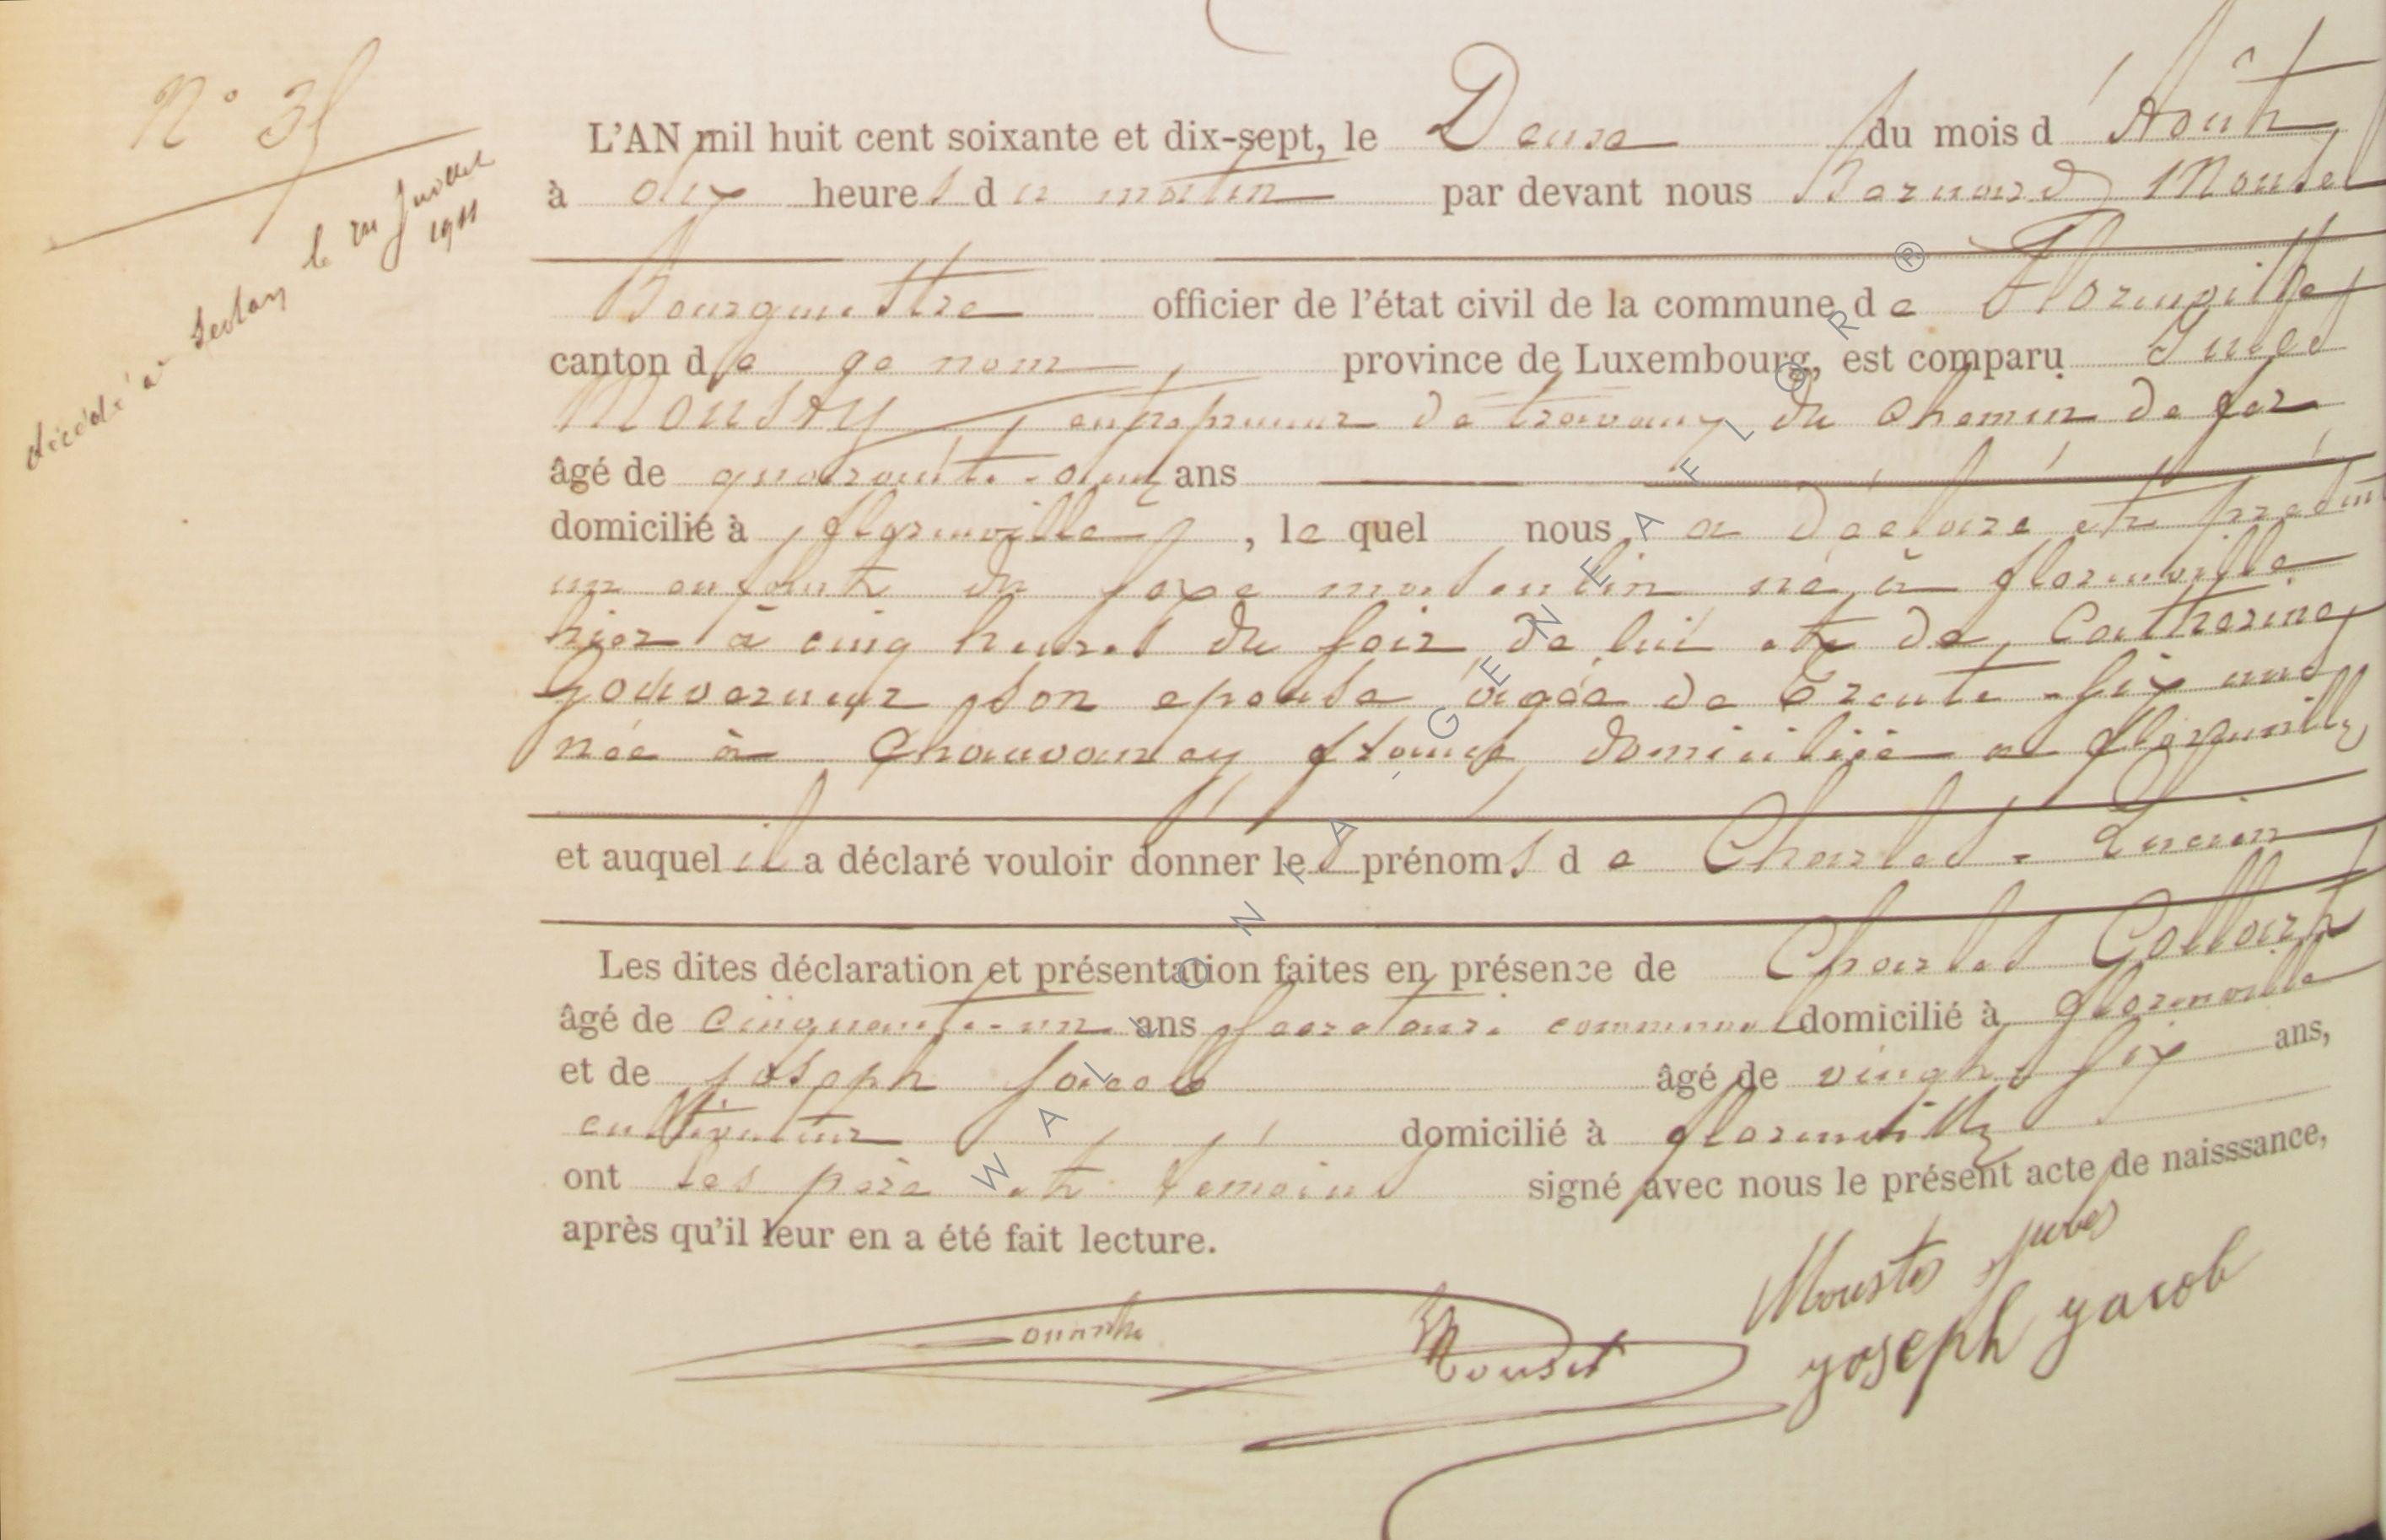 N° 35
décédé à Sedan le 20 Juillet
1911
L'AN mil huit cent soixante et dix-sept, le Deux du mois d'Août
à dix heures du matin par devant nous Bernard Mousel
Bourgmestre officier de l'état civil de la commune de Florenville
canton de ce nom, province de Luxembourg, est comparu Jules
Mousty, entrepreneur de travaux du chemin de fer
âgé de quarante-deux ans
domicilié à florenville, le quel nous a déclaré et présenté
un enfant du sexe masculin né à florenville
hier à cinq heures du soir de lui et de Catherine
Gouverneur son epouse âgée de trente-six ans
née à Chauvancy france domiciliée a florenville
et auquel il a déclaré vouloir donner les prénoms de Charles-Lucien
Les dites déclaration et présentation faites en présence de Charles Collart
âgé de cinquante-un ans secrétaire communal domicilié à florenville
et de Joseph Jacob âgé de vingt-six ans,
cultivateur domicilié à florenville
ont les père et temoins signé avec nous le présent acte de naisssance,
après qu'il leur en a été fait lecture.
Mousty jules
Mousel
yoseph yacob
WALLONIA - GENEAFLOR ®